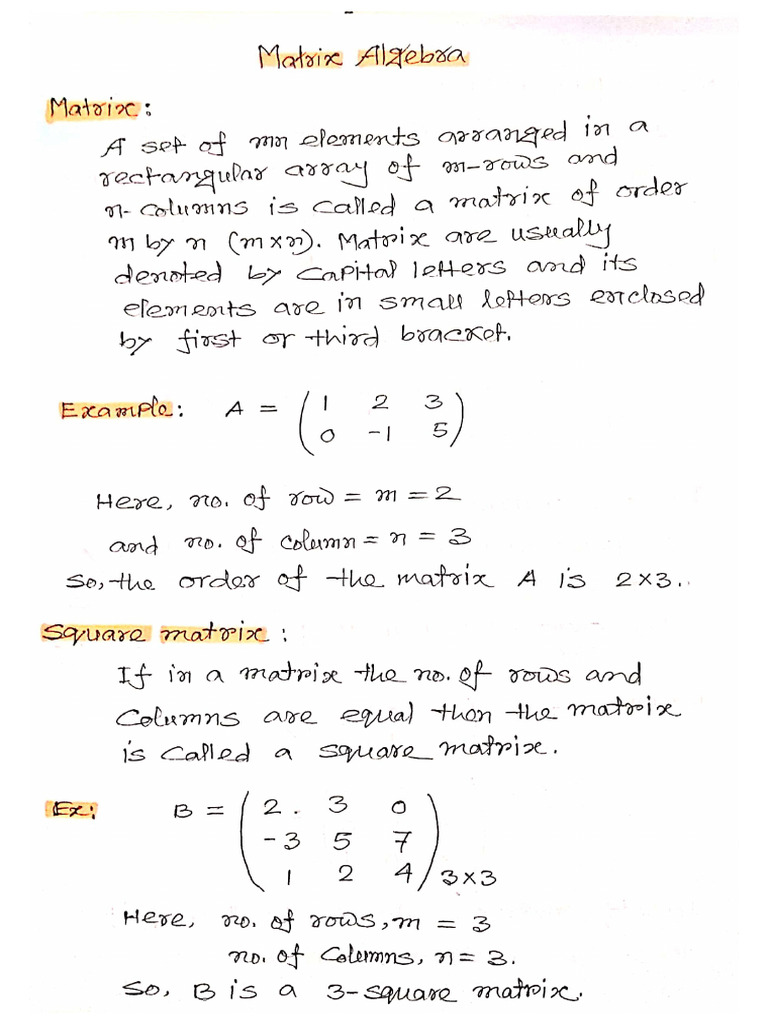 Matrix Algebra
Matrix:
A set of mn elements arranged in a
rectangular array of m-rows and
n-columns is called a matrix of order
m by n (m×n). Matrix are usually
denoted by capital letters and its
elements are in small letters enclosed
by first or third bracket.
Example: A = ( 1 2 3
0 -1 5 )
Here, no. of row = m = 2
and no. of column = n = 3
So, the order of the matrix A is 2×3.
Square matrix:
If in a matrix the no. of rows and
columns are equal then the matrix
is called a square matrix.
Ex: B = ( 2 3 0
-3 5 7
1 2 4 ) 3×3
Here, no. of rows, m = 3
no. of columns, n = 3.
So, B is a 3-square matrix.